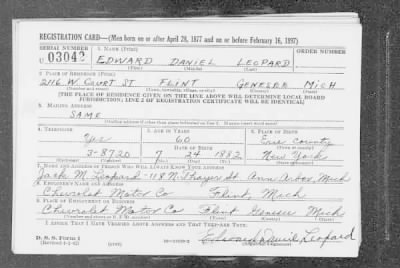 REGISTRATION CARD—(Men born on or after April 28, 1877 and on or before February 16, 1897)
SERIAL NUMBER 1. NAME (Print) ORDER NUMBER
U 03042 EDWARD DANIEL LEOPARD
(First) (Middle) (Last)
2. PLACE OF RESIDENCE (Print)
2116 W. COURT ST FLINT GENESEE MICH
(Number and street) (Town, township, village, or city) (County) (State)
[THE PLACE OF RESIDENCE GIVEN ON THE LINE ABOVE WILL DETERMINE LOCAL BOARD
JURISDICTION; LINE 2 OF REGISTRATION CERTIFICATE WILL BE IDENTICAL]
3. MAILING ADDRESS
SAME
[Mailing address if other than place indicated on line 2. If same insert word same]
4. TELEPHONE 5. AGE IN YEARS 6. PLACE OF BIRTH
Yes 60 Erie County
DATE OF BIRTH (Town or county)
3-8720 7 24 1882 New York
(Exchange) (Number) (Mo.) (Day) (Yr.) (State or country)
7. NAME AND ADDRESS OF PERSON WHO WILL ALWAYS KNOW YOUR ADDRESS
Jack M. Leopard - 118 N. Thayer St. Ann Arbor, Mich
8. EMPLOYER'S NAME AND ADDRESS
Chevrolet Motor Co Flint, Mich
9. PLACE OF EMPLOYMENT OR BUSINESS
Chevrolet Motor Co Flint Genesee Mich
(Number and street or R. F. D. number) (Town) (County) (State)
I AFFIRM THAT I HAVE VERIFIED ABOVE ANSWERS AND THAT THEY ARE TRUE.
D. S. S. Form 1 Edward Daniel Leopard
(Revised 4-1-42) (over) (Registrant's signature)